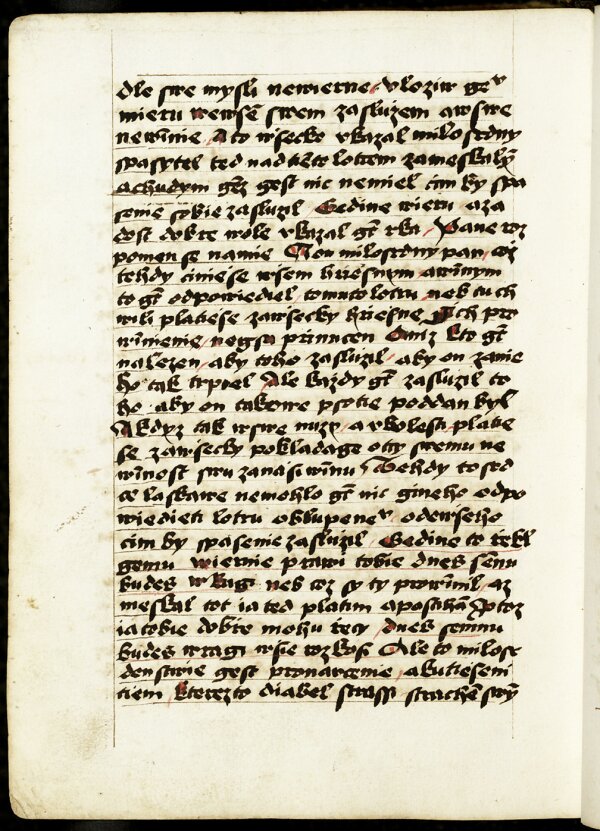 dle swe mysli newierne vloziw gey
mieru wewsē swem zasluzem aw swe
newinnie A to wsecko vkazal milosrdny
spasytel ted nad tiēto lotrem zameskaly
achudym gēz gest nic nemiel cim by spa
senie sobie zasluzil Gedine wieru a za
dost dobre wole vkazal gt rka Pane roz
pomen se namie Ten milosrdny pan coz
tehdy cinise wsem hriesnym a winnym
to gt odpowiediel tomuto lotru neb tu ch
wili platiese zawsecky hriesne Gich pro
winienie negsa prinucen Aniz kto gt
nalezen aby toho zasluzil aby on zanie
ho tak trpiel Ale kazdy gt zasluzil to
ho aby on takowe psotie poddan byl
A kdyz tak wswe nuzy a wbolesti platie
se zawsecky pokladage otcy swemu ne
winnost swu zanasi winnu Tehdy to srd
ce laskawe nemohlo gt nic gineho odpo
wiedieti lotru oklupeney odewseho
cim by spasenie zasluzil Gedine to rekl
gemu wiernie prawi tobie dnes semnu
budes w Ragi neb coz sy ty prowinil az
meskal tot ia ted platim a postihā Protoz
ia tobie dobre mohu recy dnes semnu
budes wragi wsie rozkosi Ale to milosr
denstwie gest pronarcenie akutiesseni
tiem kterezto diabel strassi strachē swy